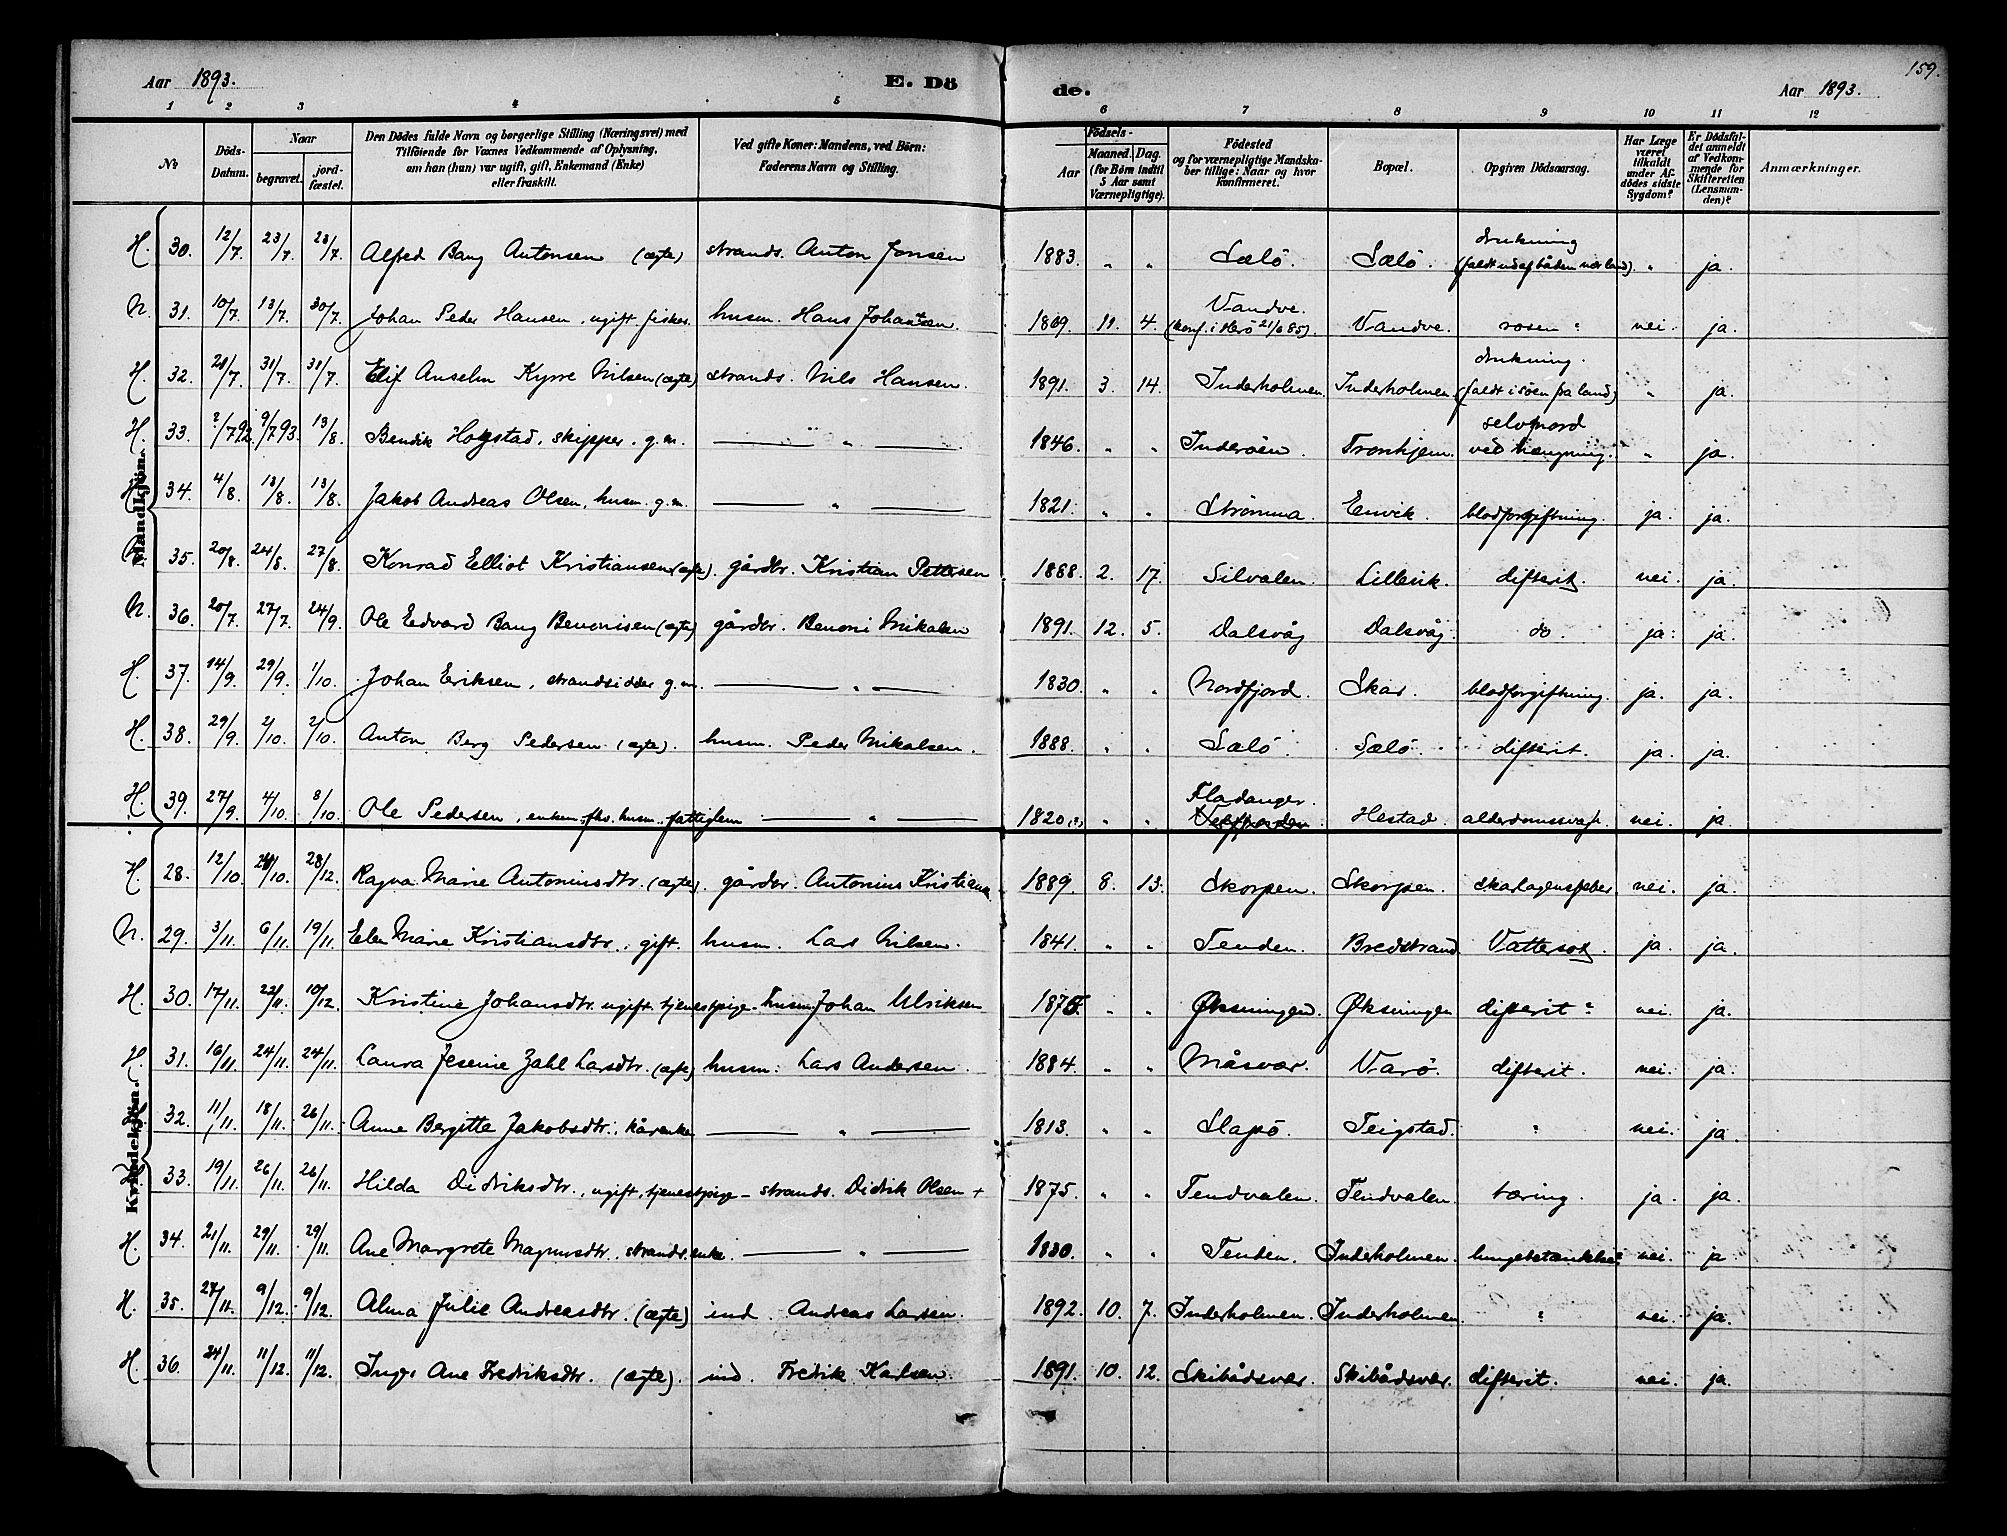 159.
Aar 1893. E. Dö de. Aar 1893.
1 2 3 4 5 6 7 8 9 10 11 12
No
Döds-Datum.
Naar
begravet.
jord-fæstet.
Den Dödes fulde Navn og borgerlige Stilling (Næringsvei) med
Tilföiende for Voxnes Vedkommende af Oplysning,
om han (hun) var ugift, gift, Enkemand (Enke)
eller fraskilt.
Ved gifte Koner: Mandens, ved Börn:
Faderens Navn og Stilling.
Födsels-
Aar
Maaned. Dag.
(for Börn indtil
5 Aar samt
Værnepligtige).
Födested
og for værnepligtige Mandska-
ber tillige: Naar og hvor
konfirmeret.
Bopæl.
Opgiven Dödsaarsag.
Har Læge
været
tilkaldt
under Af-
dödes sidste
Sygdom?
Er Dödsfal-
det anmeldt
af Vedkom-
mende for
Skifteretten
(Lensman-
den)?
Anmærkninger.
Mandkjön.
H. 30. 12/7. 23/7. 23/7. Alfred Bang Antonsen (ægte) strands. Anton Jonsen 1883. " " Sælö. Sælö. drukning (faldt ud af båden nær land). " ja.
N. 31. 10/7. 13/7. 30/7. Johan Peder Hansen, ugift fisker. husm. Hans Johansen. 1869. 11. 4. Vandve. (konf. i Herö 21/6 85). Vandve. rosen ? nei. ja.
H. 32. 21/7. 31/7. 31/7. Elif Anselm Kyrre Nilsen (ægte) strands. Nils Hansen. 1891. 3. 14. Inderholmen. Inderholmen. drukning. (faldt i söen fra land) " ja.
H. 33. ?/7 92. 9/7 93. 13/8. Bendik Hogstad, skipper. g.m. — " — 1846. " " Inderöen. Tronhjem. selvmord ved hængning. " ja.
H. 34. 4/8. 13/8. 13/8. Jakob Andreas Olsen, husm. g.m. — " — 1821. " " Strömma Einvik. blodforgiftning. ja. ja.
N. 35. 20/8. 24/8. 27/8. Konrad Elliot Kristiansen (ægte). gårdbr. Kristian Pettersen 1888. 2. 17. Silvalen. Lillevik. difterit nei. ja.
N. 36. 20/7. 27/7. 24/9. Ole Edvard Bang Benonisen (ægte) gårdbr. Benoni Mikalsen 1891. 12. 5. Dalsvåg Dalsvåg do ja. ja.
H. 37. 14/9. 29/9. 1/10. Johan Eriksen, strandsidder g.m. — " — 1830. " " Nordfjord. Skar. blodforgiftning. ja. ja.
H. 38. 29/9. 2/10. 2/10. Anton Berg Pedersen (ægte). husm. Peder Mikalsen. 1888. " " Sælö. Sælö. difterit. ja. ja.
H. 39. 27/9. 4/10. 8/10. Ole Pedersen, enkem. fhv. husm. fattiglem — " — 1820 (?) " " Fladanger. Hestad. alderdomssvagh. nei. ja.
Kvindekjön.
H. 28. 12/10. 28/12. Ragna Marie Antoniusdtr. (ægte). gårdbr. Antonius Kristiansen 1889. 8. 13. Skorpen. Skorpen. skarlagensfeber nei. ja.
N. 29. 3/11. 6/11. 19/11. Elen Marie Kristiansdtr., gift. husm. Lars Nilsen. 1841. " " Tenden. Bredstrand Vattersot. ja. ja.
H. 30. 17/11. 22/11. 10/12. Kristine Johansdtr. ugift, tjenestpige - husm. Johan Ulriksen " " Øksningen. Øksningen difterit ? nei. ja.
H. 31. 16/11. 24/11. 24/11. Laura Jesine Zahl Larsdtr. (ægte) husm. Lars Andersen. 1884. " " Måsvær. Varö. difterit. nei. ja.
H. 32. 11/11. 18/11. 26/11. Anne Bergitte Jakobsdtr. kårenke — " — 1813. " " Slapö. Teigstad. ? nei. ja.
H. 33. 19/11. 26/11. 26/11. Hilda Didriksdtr., ugift, tjenestpige - strands. Didrik Olsen + 1875. " " Tendvalen. Tendvalen. tæring. ja. ja.
H. 34. 21/11. 29/11. 29/11. Ane Margrete Magnusdtr. strands.enke. — " — 1830. " " Tenden. Inderholmen. lungebetændelse? nei. ja
H. 35. 27/11. 9/12. 9/12. Alma Julie Andreasdtr. (ægte) ind. Andreas Larsen. 1892. 10. 7. Inderholmen. Inderholmen. ? nei. ja.
H. 36. 24/11. 11/12. 11/12. Inga Ane Fredriksdtr. (ægte). ind. Fredrik Karlsen. 1891. 10. 12. Skibådsvær. Skibådsvær. difterit. nei. ja.